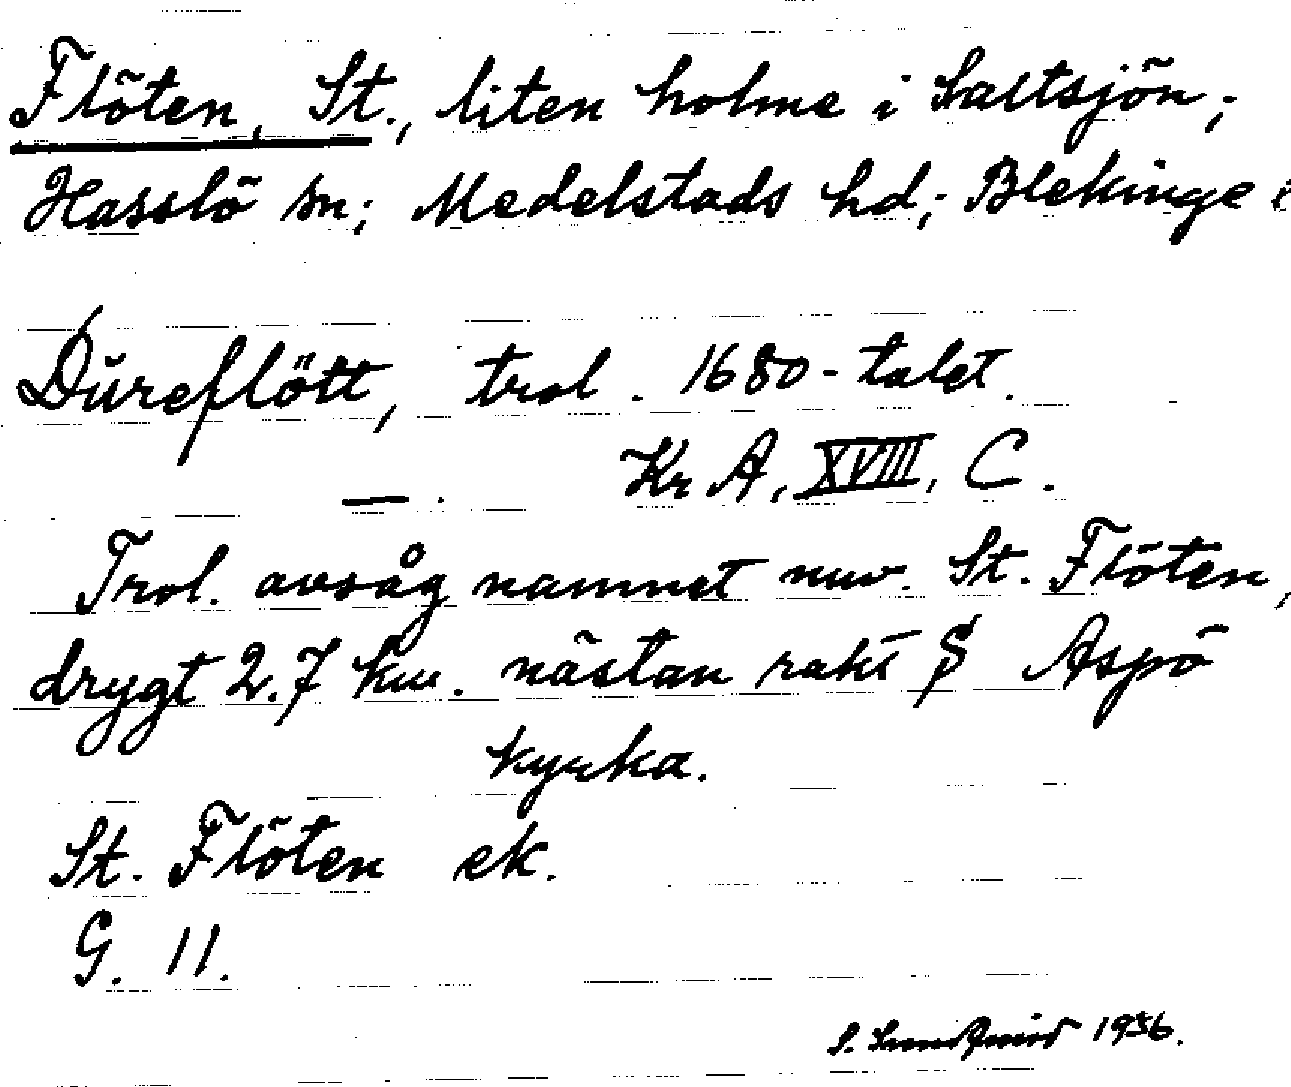 Flöten, St., liten holme i Saltsjön;
Hasslö sn; Medelstads hd; Blekinge
Dŭreflött, trol. 1680-talet.
— . Kr A, XVIII, C.
Trol. avsåg namnet nuv. St. Flöten,
drygt 2.7 km. nästan rakt S Aspö
kyrka.
St. Flöten ek.
G. 11.
S. 1936.